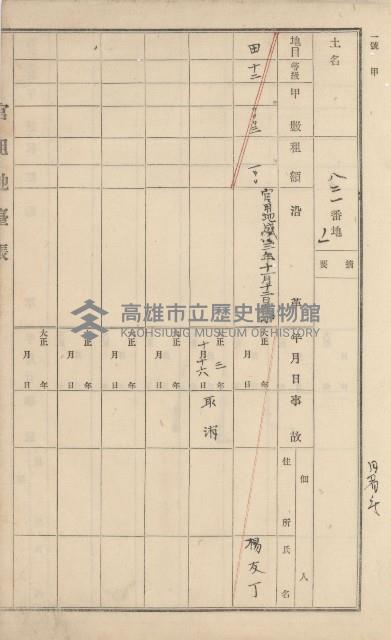 一號 甲
土名
八二一番地ノ
摘要
地目 等級 甲數 租額 沿革 年月日 事故 佃人 住所 氏名
田 十二
大正 年 月 日
楊友丁
大正 三年 十月十六日 取消
大正 年 月 日
大正 年 月 日
大正 年 月 日
大正 年 月 日
官租地臺帳
高雄市立歷史博物館
KAOHSIUNG MUSEUM OF HISTORY